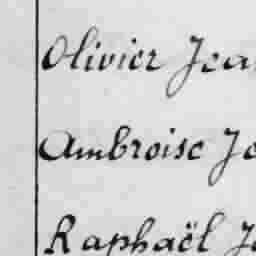 Olivier Jea
Ambroise Je
Raphaël Je